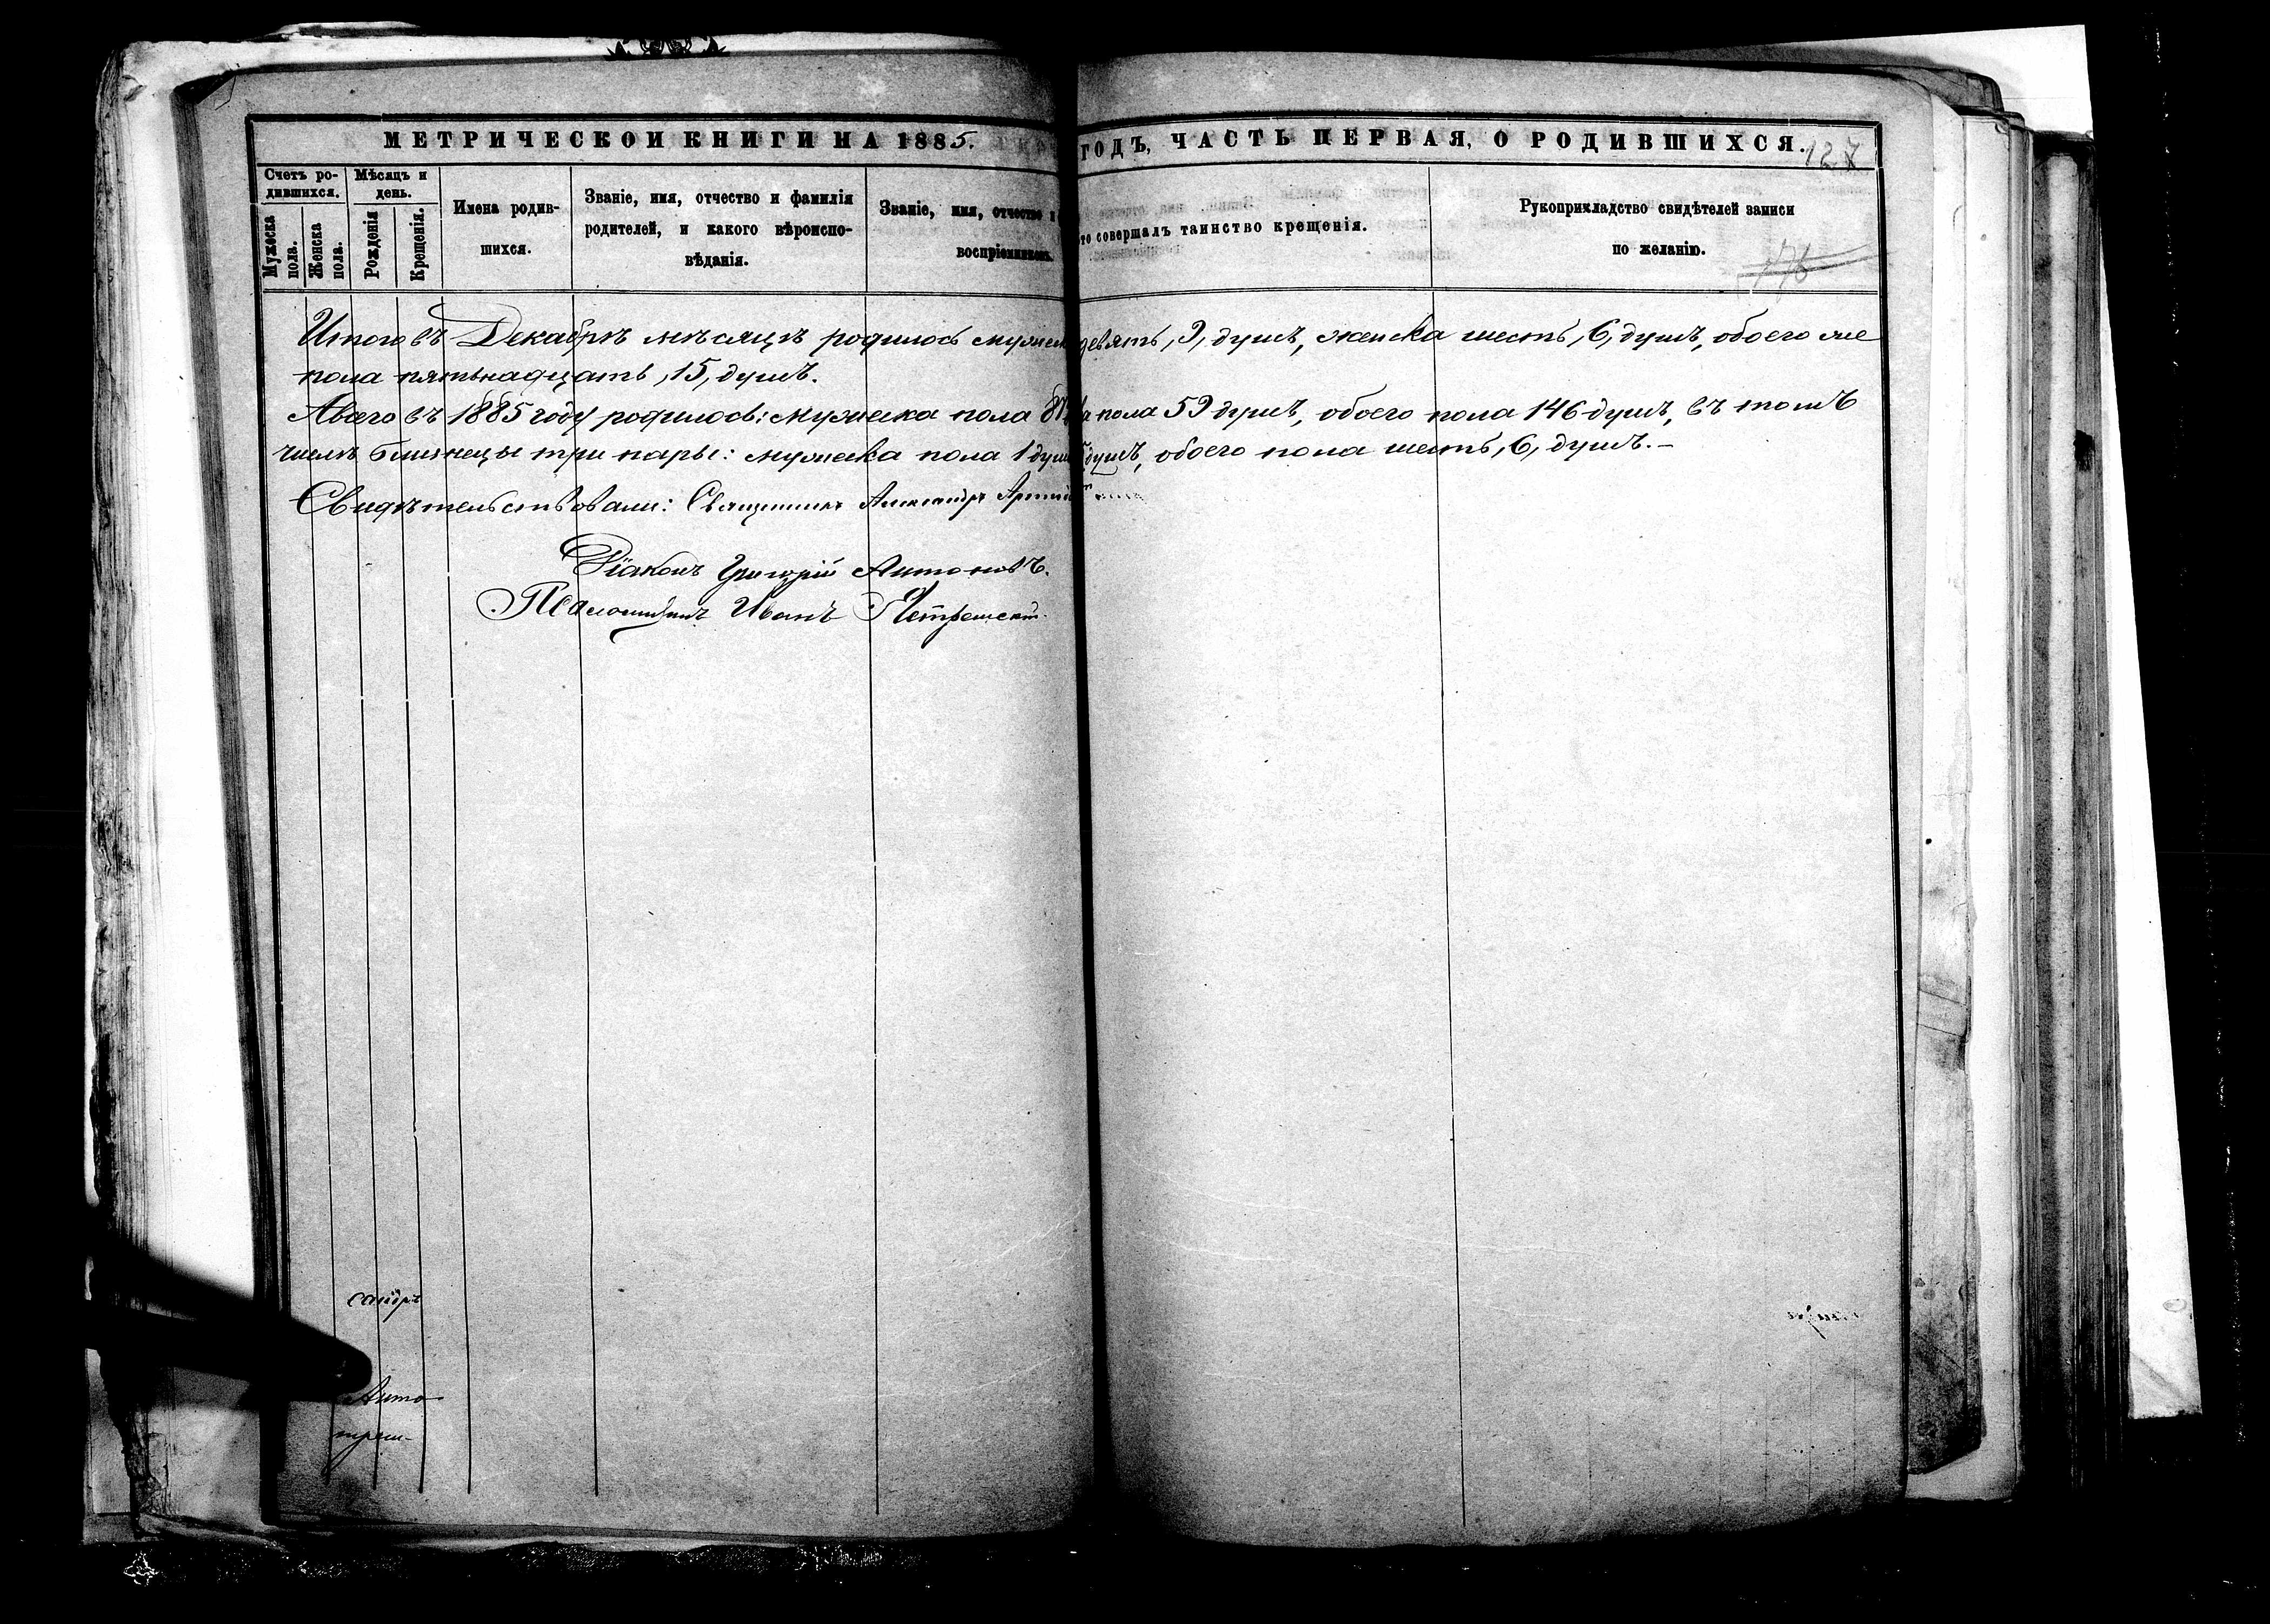 МЕТРИЧЕСКОЙ КНИГИ НА 1885. ГОДЪ, ЧАСТЬ ПЕРВАЯ, О РОДИВШИХСЯ.
127
Счетъ родившихся.
Мужеска пола.
Женска пола.
Мѣсяцъ и день.
Рожденія
Крещенія.
Имена родившихся.
Званіе, имя, отчество и фамилія родителей, и какого вѣроисповѣданія.
Званіе, имя, отчество и
воспріемниковъ.
то совершалъ таинство крещенія.
Рукоприкладство свидѣтелей записи по желанію.
176
Итого въ Декабрѣ мѣсяцѣ родилось мужеск девять, 9, душъ, женска шесть, 6, душъ, обоего же
пола пятьнадцать, 15, душъ.
А всего въ 1885 году родилось: мужеска пола 87 пола 59 душъ, обоего пола 146 душъ, въ томъ
числѣ близнецы три пары: мужеска пола 1 душ душъ, обоего пола шесть, 6, душъ.-
Свидѣтельствовали: Священникъ Александръ
Діаконъ Григорій Антоновъ.
Псаломщикъ Иванъ
сандръ
Анто
треш-